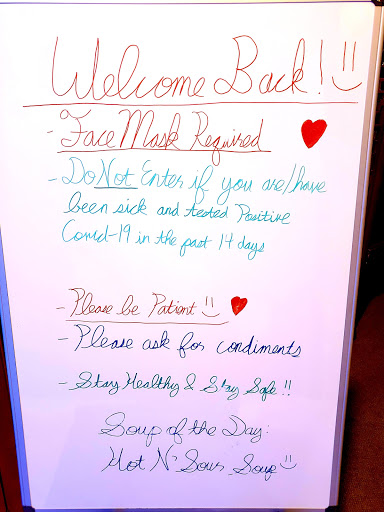 Welcome Back! :)
- Face Mask Required
- Do Not Enter if you are/have
been sick and tested Positive
Covid-19 in the past 14 days
- Please be Patient :)
- Please ask for condiments
- Stay Healthy & Stay Safe!!
Soup of the Day:
Hot N' Sour Soup :)